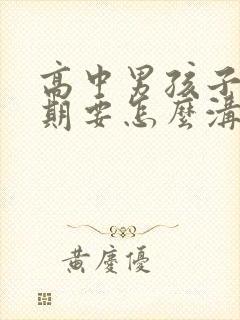 高中男孩子
期要怎麼溝
黃慶優